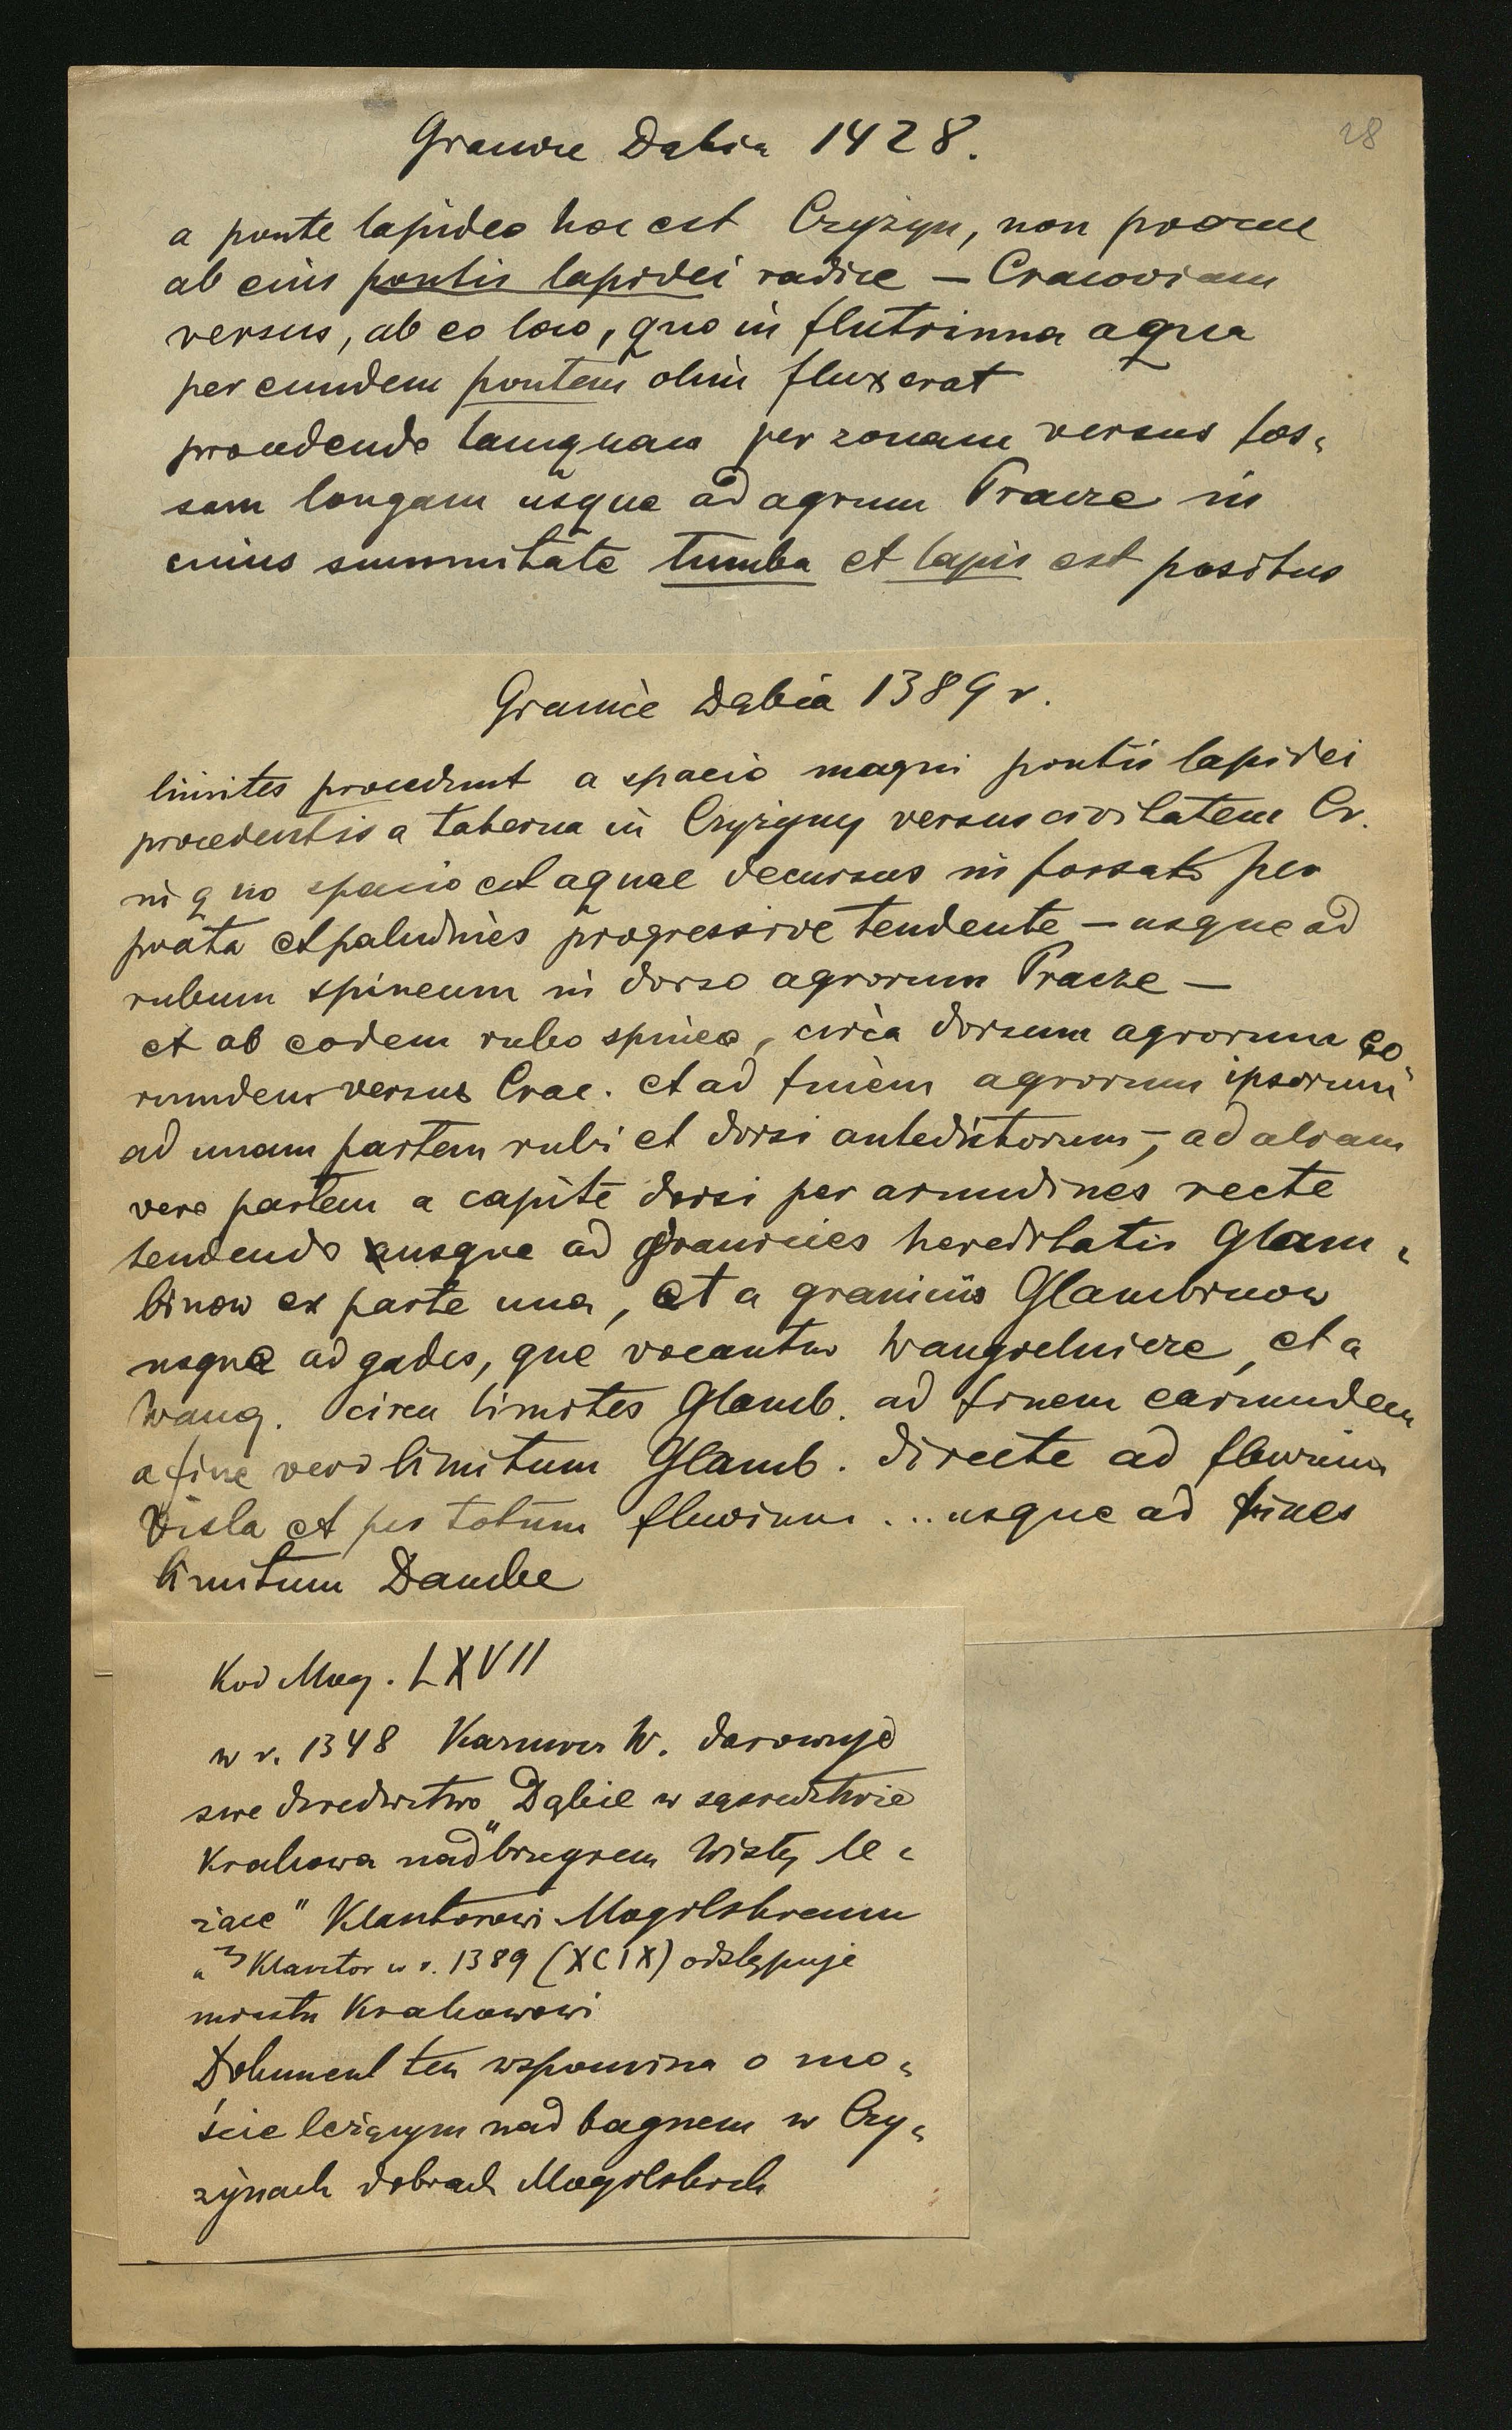 28
Granice Dąbia 1428.
a ponte lapideo hoc est Czyżyn, non procul
ab eius pontis lapidei radice — Cracoviam
versus, ab eo loco, quo in flutrinna aqua
per eundem pontem olim fluxerat
procedendo tamquam per zonam versus fos-
sam longam usque ad agrum Pracze in
cuius summitate tumba et lapis est positus
Granice Dąbia 1389 r.
limites procedunt a spacio magni pontis lapidei
procedentis a taberna in Czyżyny versus civitatem Cr.
in quo spacio est aquae decursus in fossato per
prata et paludines progressive tendente — usque ad
rubum spineum in dorso agrorum Pracze —
et ab eodem rubo spineo, circa dorsum agrorum eo
rumdem versus Crac. et ad finem agrorum ipsorum
ad unam partem rubi et dorsi antedictorum —, ad aliam
vero partem a capite dorsi per arundines recte
tendendo usque ad granicies hereditatis Glam-
binow ex parte una, et a graniciis Glambinow
usque ad gades, que vocantur Wangrelnicze, et a
Wang. circa limites Glamb. ad finem earumdem
a fine vero limitum Glamb. directe ad fluvium
Visla et per totum fluvium ... usque ad fines
limitum Dambe
Kod Mog. LXVII
w r. 1348 Kazimierz W. darowuje
swe dziedzictwo "Dąbie w sąsiedztwie
Krakowa nad brzegiem Wisły le-
żące" Klasztorowi Mogilskiemu
Klasztor w r. 1389 (XCIX) odstępuje
miastu Krakowowi
Dokument ten wspomina o mo-
ście leżącym nad bagnem w Czy-
żynach dobrach Mogilskich